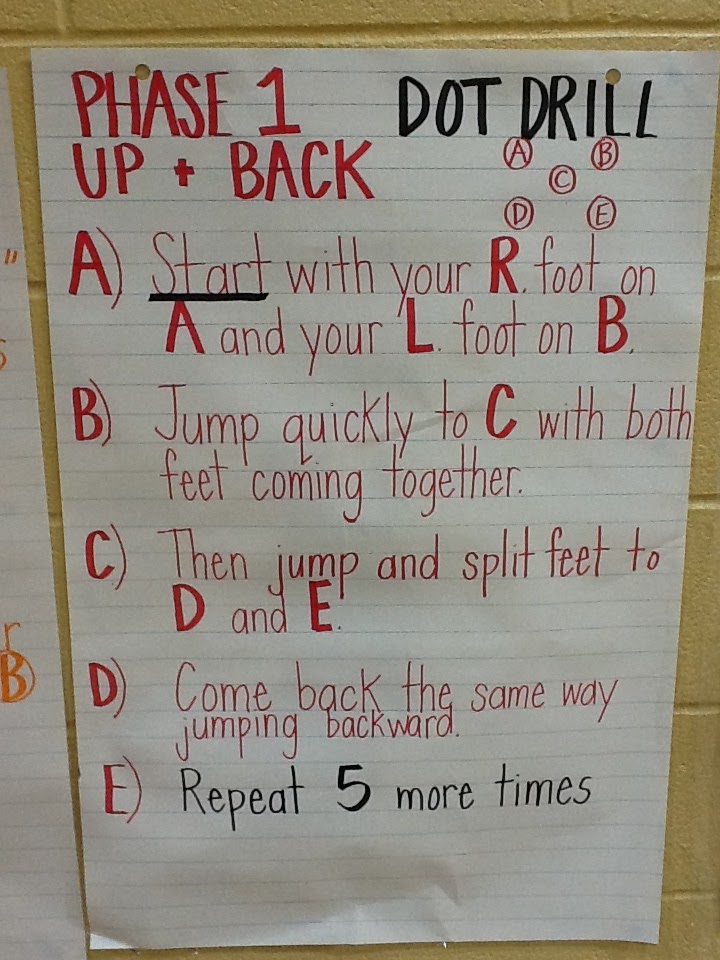 PHASE 1 DOT DRILL
UP + BACK
Ⓐ Ⓑ
Ⓒ
Ⓓ Ⓔ
A) Start with your R. foot on
A and your L. foot on B.
B) Jump quickly to C with both
feet coming together.
C) Then jump and split feet to
D and E.
D) Come back the same way
jumping backward.
E) Repeat 5 more times
"
r
B)